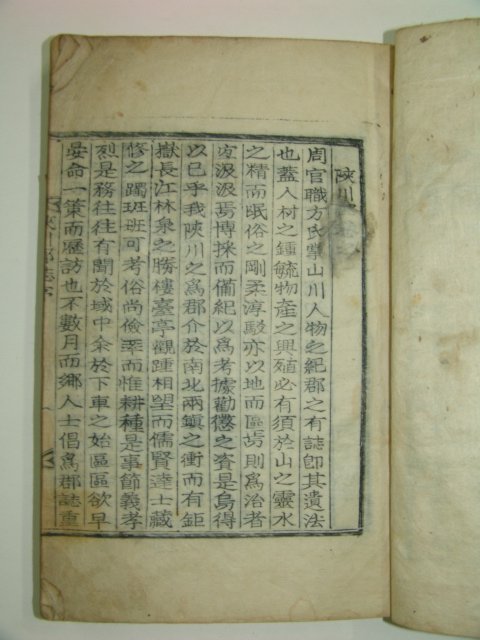 陜川
周官職方氏掌山川人物之紀郡之有誌卽其遺法
也蓋人材之鍾毓物產之興殖必有須於山之靈水
之精而氓俗之剛柔淳駁亦以地而區焉則爲治者
宜汲汲焉博採而備紀以爲考據勸懲之資是烏得
以已乎我陜川之爲郡介於南北兩鎭之衝而有鉅
嶽長江林泉之勝樓臺亭觀踵相望而儒賢達士藏
修之躅班班可考俗尚儉率而惟耕種是事節義孝
烈是務往往有聞於域中余於下車之始區區欲早
晏命一策而歷訪也不數月而鄕人士倡爲郡誌重
陜川郡誌序